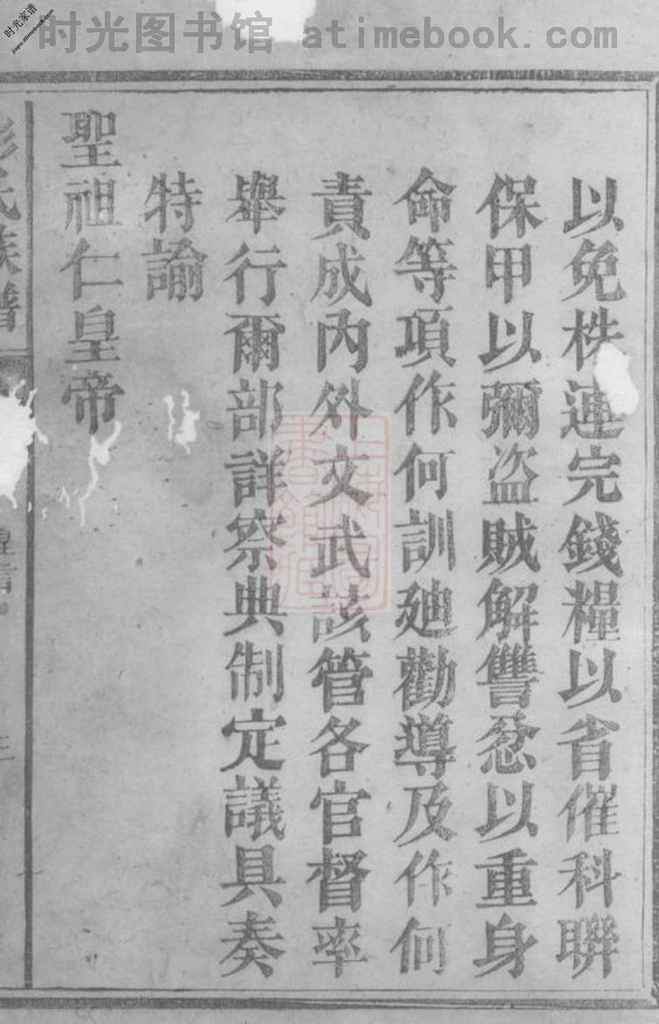 时光图书馆 atimebook.com
时光家谱
以免株連完錢糧以省催科聯
保甲以彌盗賊解讐忿以重身
命等項作何訓廸勸導及作何
責成內外文武該管各官督率
舉行爾部詳察典制定議具奏
特諭
聖祖仁皇帝
氏族譜